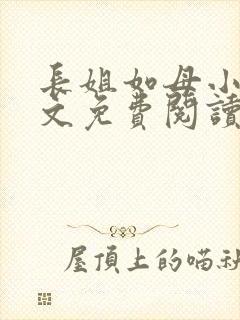 長姐如母小
文免費閱讀
屋頂上的喵